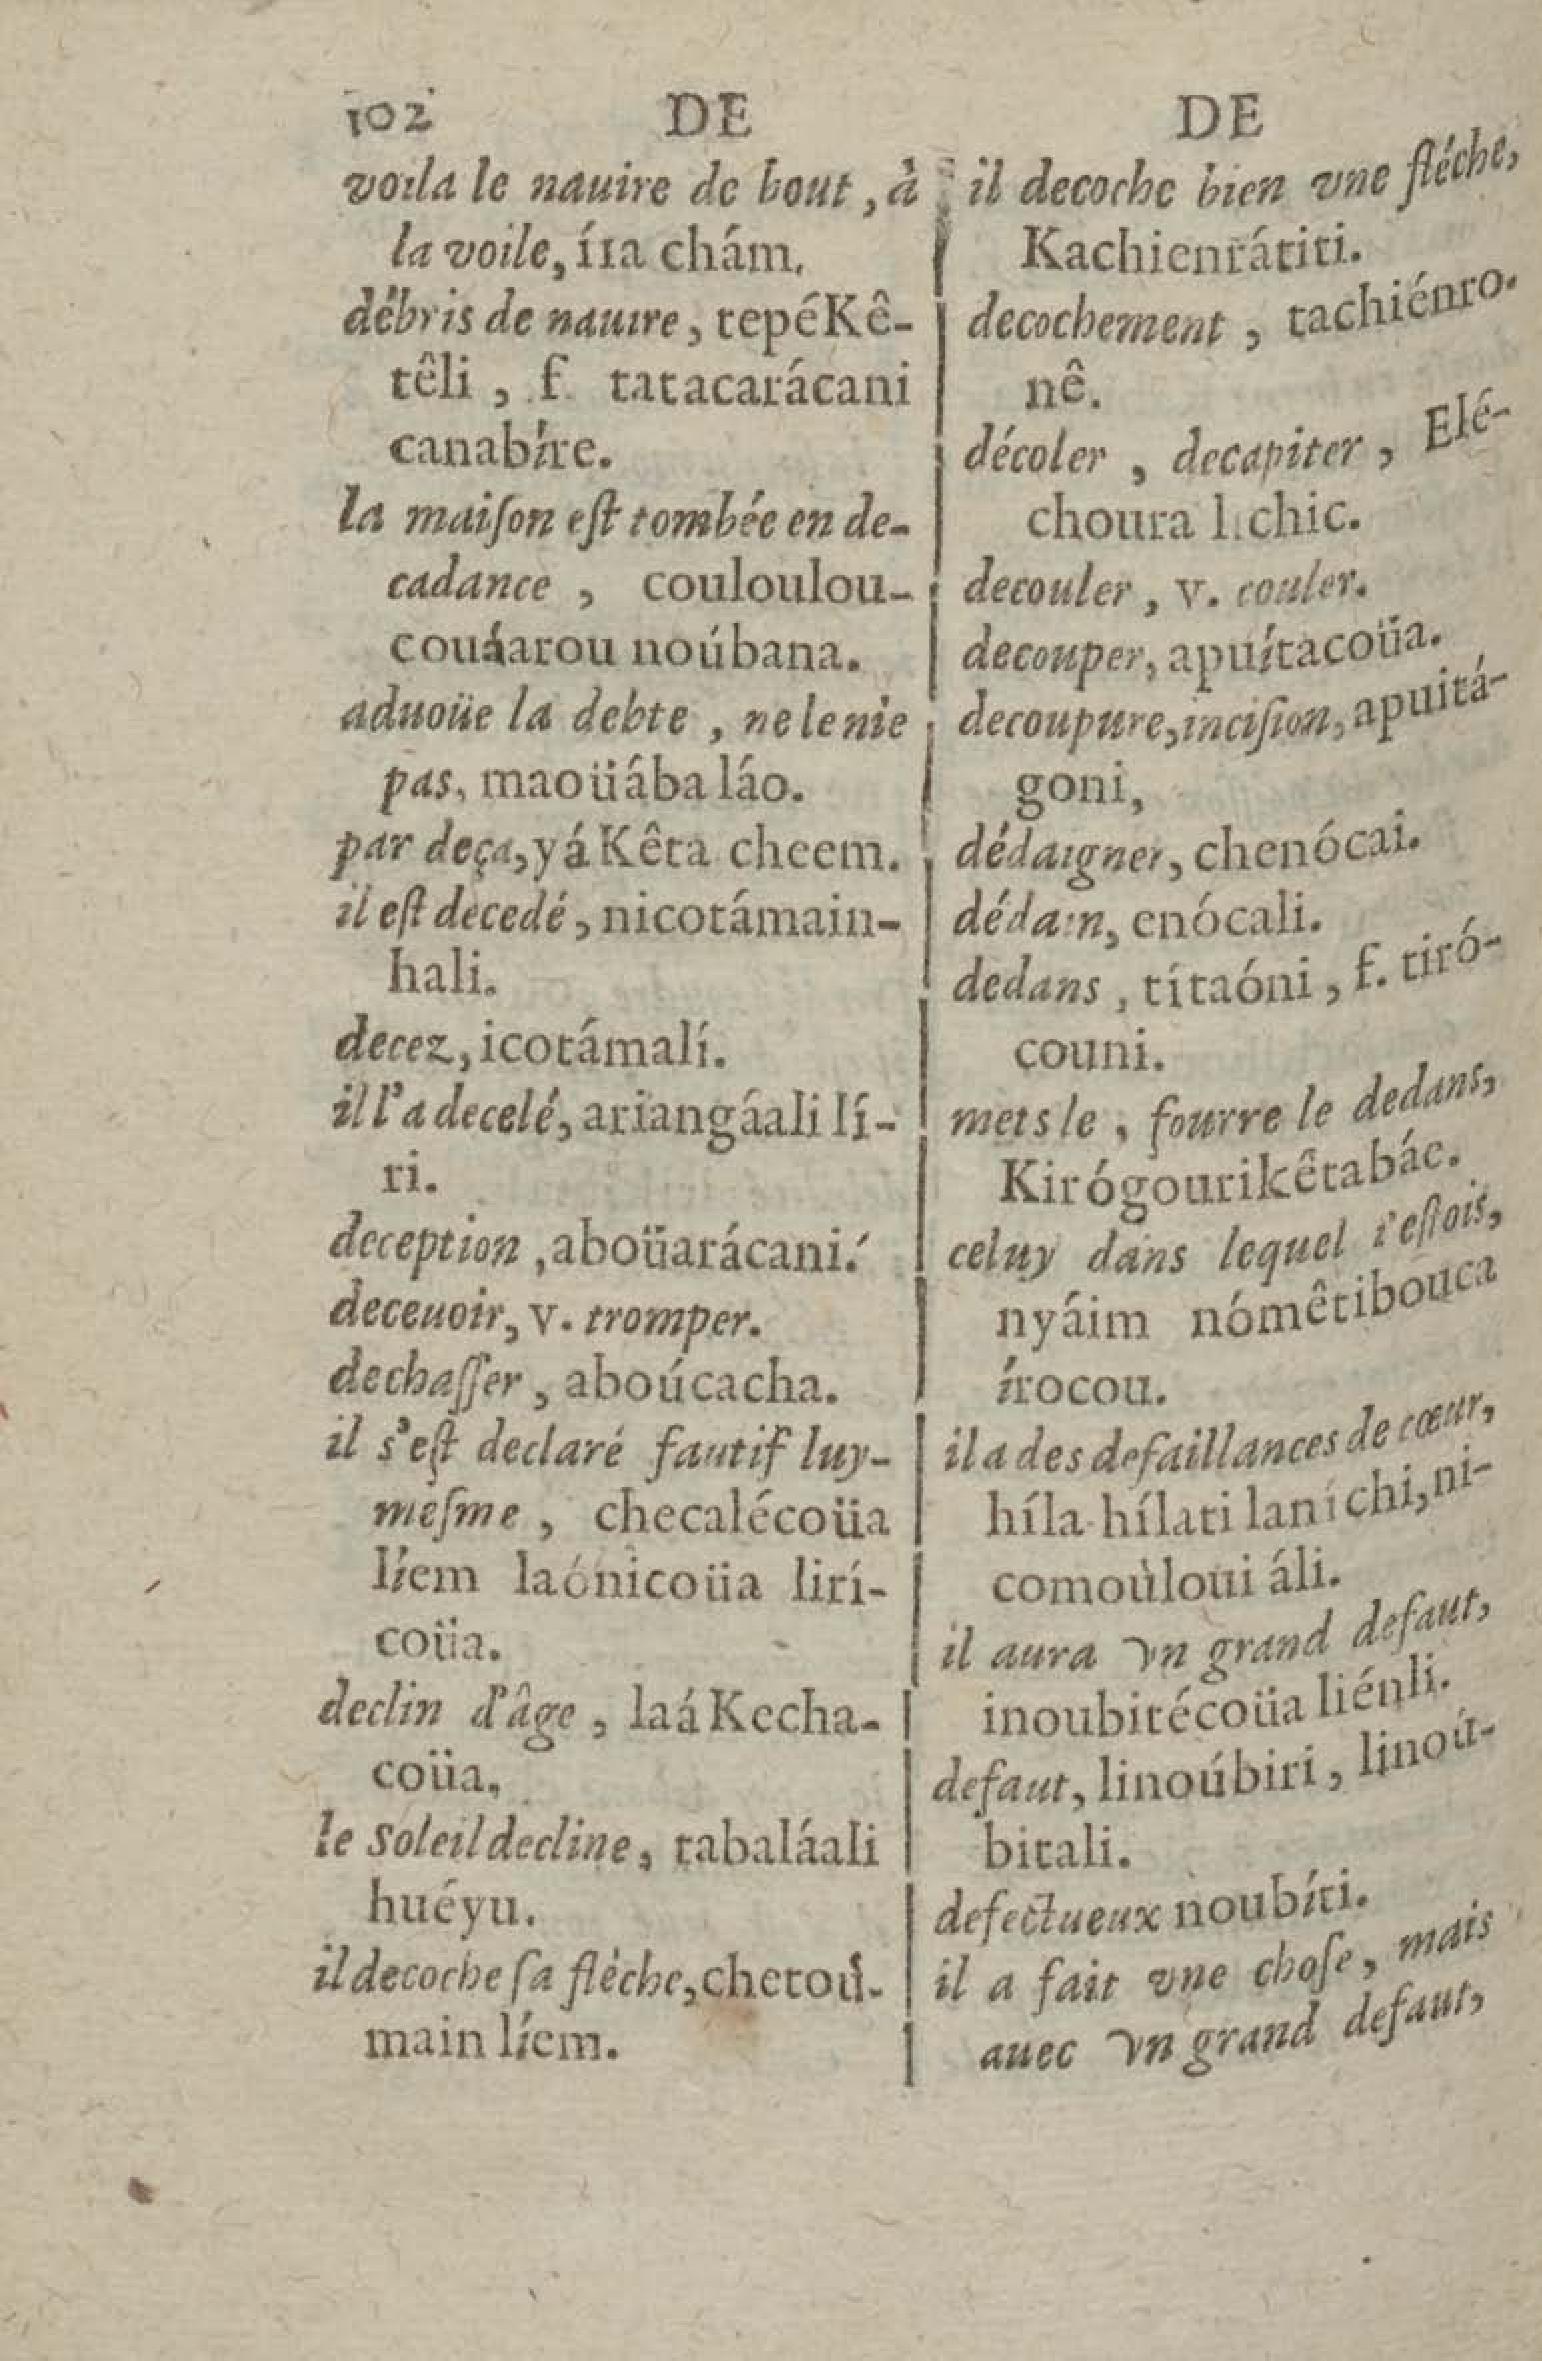 102 DE DE
voila le nauire de bout, à
la voile, íra chám.
débris de nauire, tepéKê-
têli, f. tatacarácani
canabíre.
la maiſon eſt tombée en de-
cadance, couloulou-
couáarou noúbana.
aduoüe la debte, ne le nie
pas, maoüába láo.
par deça, yáKêta cheem.
il eſt decedé, nicotámain-
hali.
decez, icotámalí.
il l'a decelé, ariangáali lí-
ri.
deception, aboüarácani.
deceuoir, v. tromper.
dechaſſer, aboúcacha.
il s'eſt declaré fautif luy-
meſme, checalécoüa
líem laónicoüa lirí-
coüa.
declin d'âge, laáKecha-
coüa,
le Soleil decline, tabaláali
huéyu.
il decoche ſa flèche, chetoú-
main líem.
il decoche bien vne fléche,
Kachienrátiti.
decochement, tachiénro-
nê.
décoler, decapiter, Elé-
choura chic.
decouler, v. couler.
decouper, apuítacoüa.
decoupure, inciſion, apuitá-
goni,
dédaigner, chenócai.
dédain, enócali.
dedans, títaóni, f. tiró-
couni.
mets le, fourre le dedans,
Kirógourikêtabác.
celuy dans lequel i'eſtois,
nyáim nómêtibouca
írocou.
il a des defaillances de cœur,
híla-hílati laníchi, ni-
comoùloui áli.
il aura vn grand defaut,
inoubitécoüa liénli.
defaut, linoúbiri, linoú-
bitali.
defectueux noubíti.
il a fait vne choſe, mais
auec vn grand defaut,